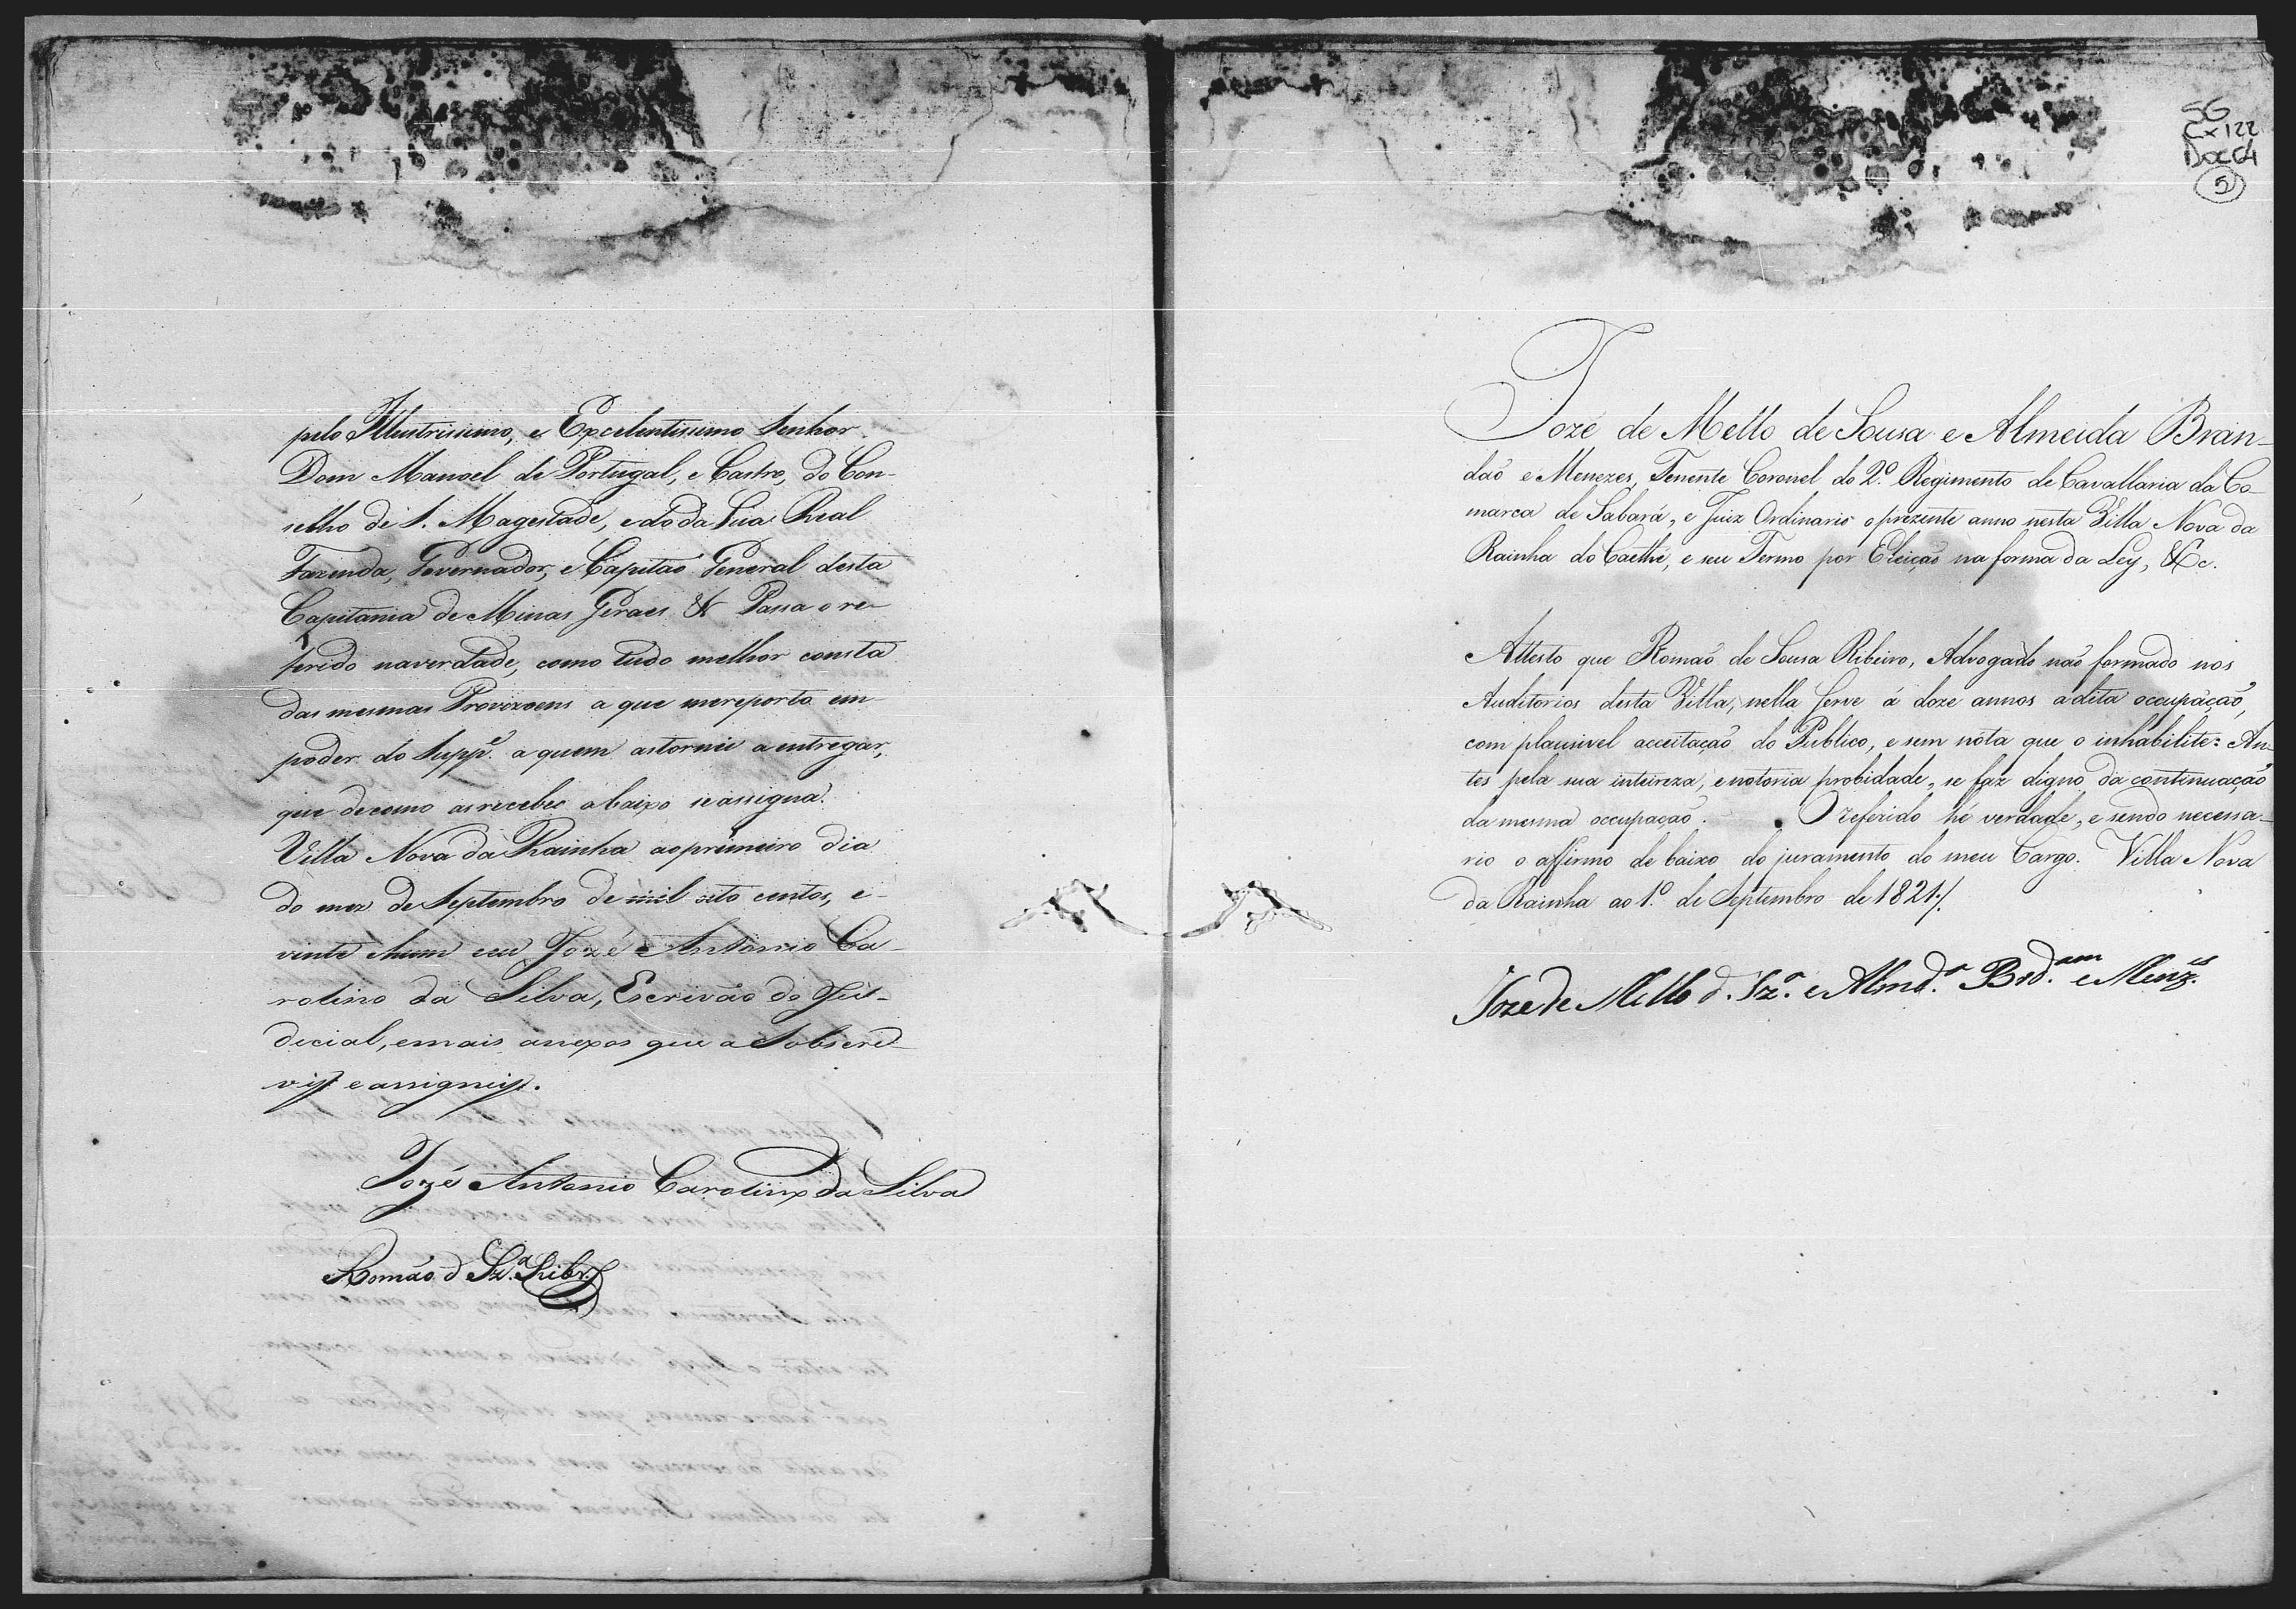 pelo Illustrissimo, e Excelentissimo Senhor
Dom Manoel de Portugal, e Castro, do Con-
selho de S. Magestade, e do da Sua Real
Fazenda, Governador, e Capitão General desta
Capitania de Minas Geraes &. Passa o re-
ferido na verdade, como tudo melhor consta
das mesmas Provizoens a que me reporto em
poder do Supp.e a quem as tornei a entregar,
que de como as recebeo abaixo se assigna.
Villa Nova da Rainha ao primeiro dia
do mez de Septembro de mil oito centos, e
vinte hum eeu Jozé Antonio Ca-
rolino da Silva, Escrivão do Ju-
dicial, e mais anexos que a Sobscre-
vy e assigney.
Jozé Antonio Carolino da Silva
Romão d Sz.a Ribr.o
SG
Cx 122
Doc 04
5
Joze de Mello de Sousa e Almeida Bran-
daõ e Menezes, Tenente Coronel do 2.º Regimento de Cavallaria da Co-
marca de Sabará, e Juiz Ordinario o prezente anno nesta Villa Nova da
Rainha do Caethé, e seu Termo por Eleiçaõ na forma da Ley, &c.
Attesto que Romaõ de Sousa Ribeiro, Advogado naõ formado nos
Auditorios desta Villa, nella serve á doze annos a dita occupaçaõ,
com plausivel acceitaçaõ do Publico, e sem nota que o inhabilite: An-
tes pela sua inteireza, e notoria probidade, se faz digno da continuaçaõ
da mesma occupaçaõ. O referido hé verdade, e sendo necessa-
rio o affirmo de baixo do juramento do meu Cargo. Villa Nova
da Rainha ao 1.º de Septembro de 1821./.
Joze de Mello d. Sz.a e Almd.a Brd.am e Menz.es